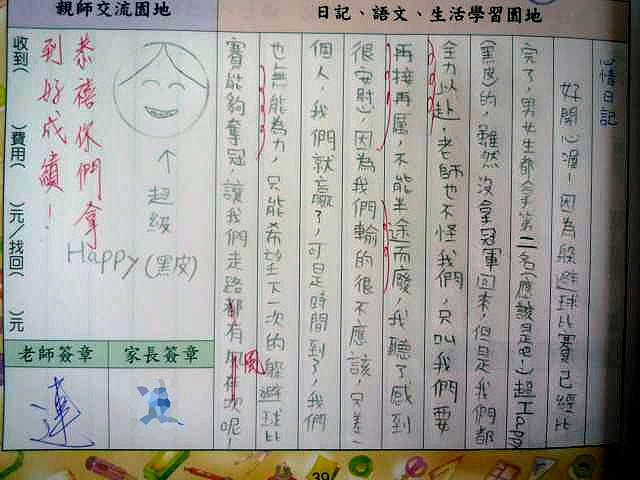 親師交流園地
日記、語文、生活學習園地
心情日記
好開心喔！因為躲避球比賽已經比
完了，男女生都拿第二名(應該是吧！)超Happy
(黑皮)的，雖然沒拿冠軍回來，但是我們都
全力以赴，老師也不怪我們，只叫我們要
再接再厲，不能半途而廢，我聽了感到
很安慰，因為我們輸的很不應該，只差一
個人，我們就贏了，可是時間到了，我們
也無能為力，只能希望下一次的躲避球比
賽能夠奪冠，讓我們走路都有風
呢！
恭禧你們拿
到好成績！
↑
超級
Happy(黑皮)
收到( )費用( )元/找回( )元
老師簽章
家長簽章
蓮
39